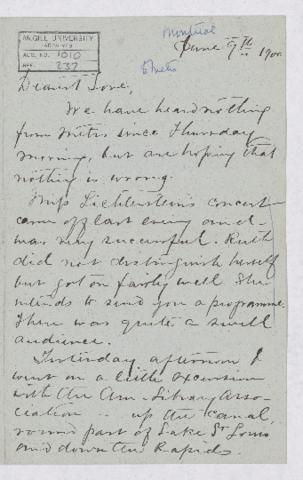 McGILL UNIVERSITY
ARCHIVES
ACC. NO. 1010
REF. 237
Montreal
to Metis
June 9th 1900
Dearest Love,
We have heard nothing
from Metis since Thursday
morning, but are hoping that
nothing is wrong.
Miss Lichtenstein's concert
came off last evening and
was very successful. Ruth
did not distinguish herself
but got on fairly well. She
intends to send you a programme.
There was quite a swell
audience.
Yesterday afternoon I
went on a little excursion
with the Am. Library Asso-
ciation - up the canal,
round part of Lake St Louis
and down the Rapids.